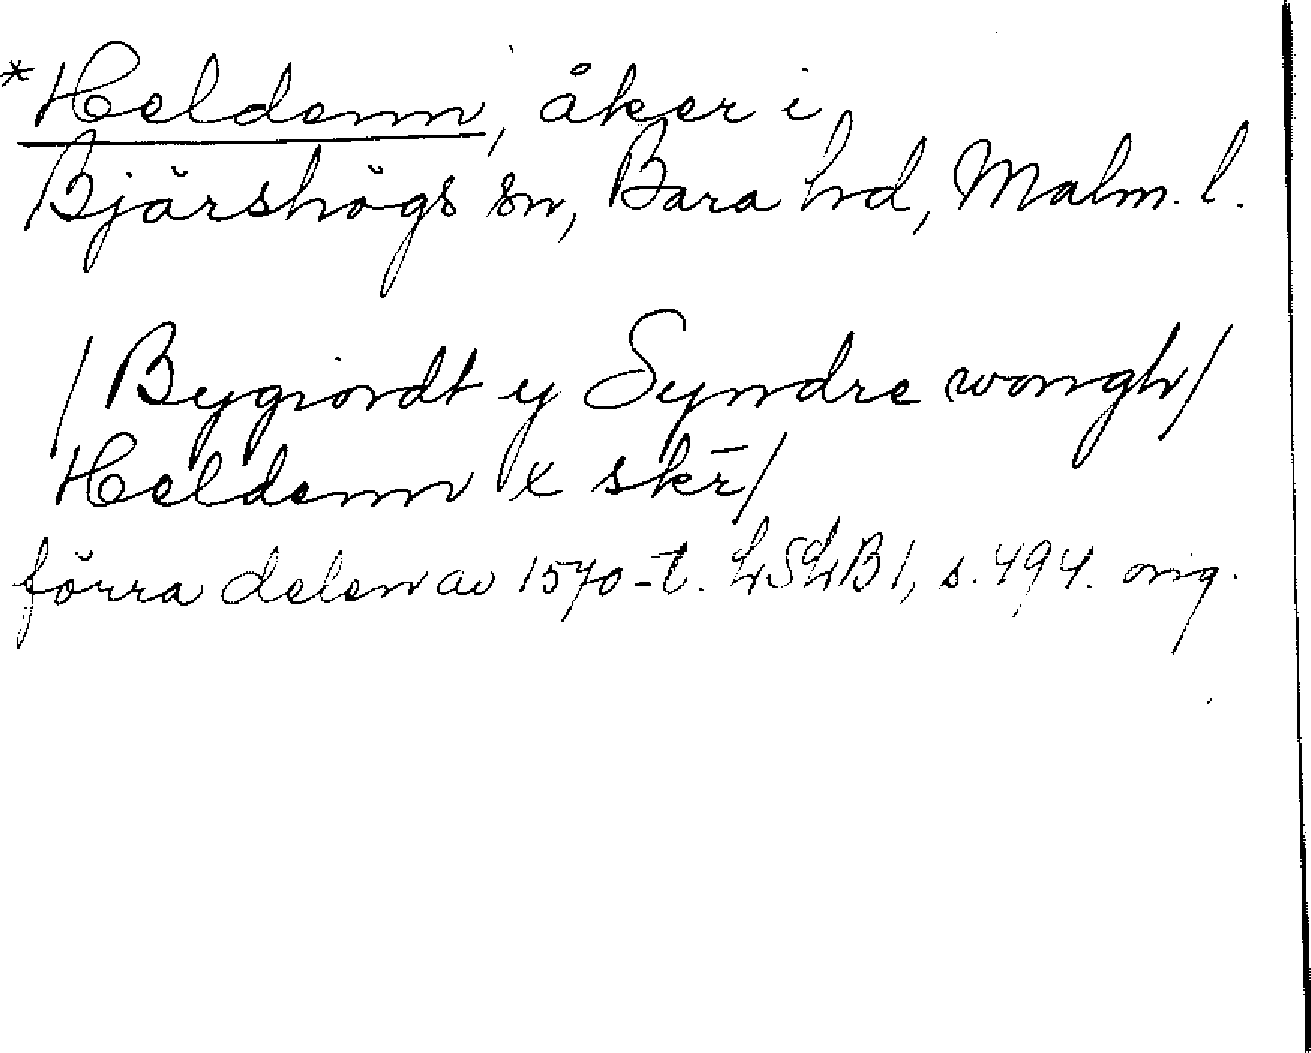 *Heldenn, åker i
Bjärshögs sn, Bara hd, Malm. l.
/Bygiordt y Syndre wongh/
Heldenn x skr̄/
förra delen av 1570-t. LSLB 1, s. 494. orig.